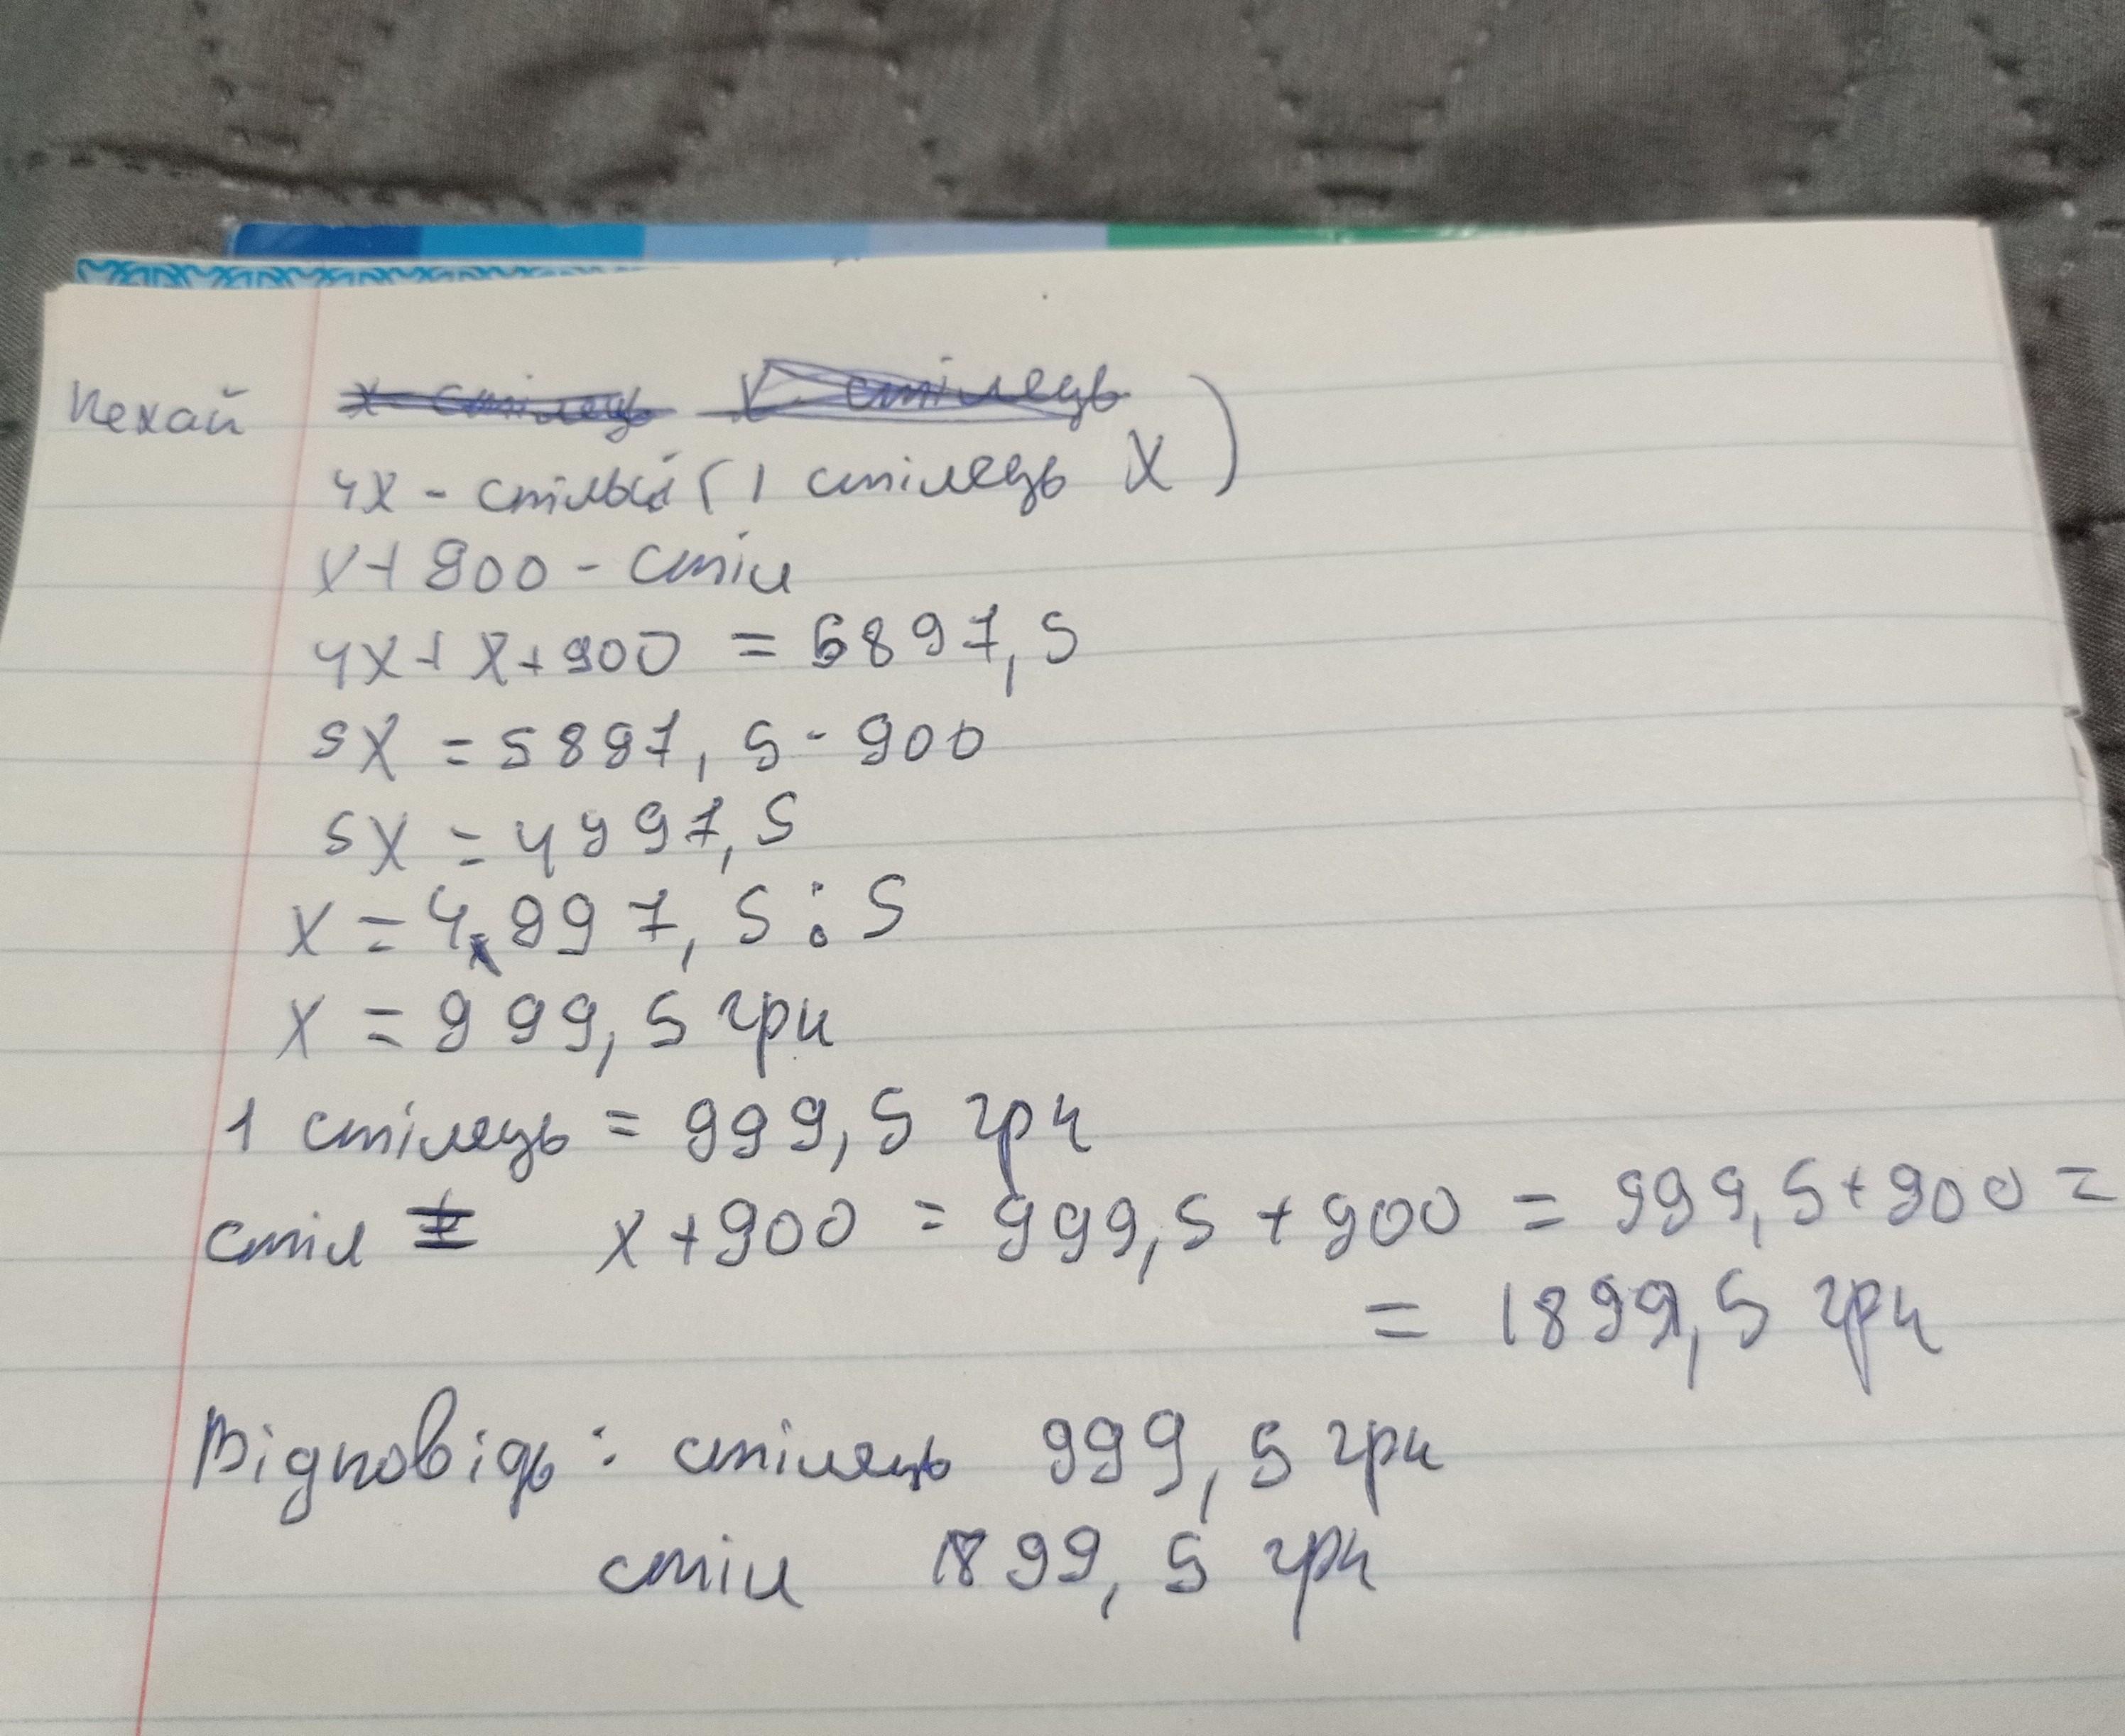 Нехай
4x - стільці (1 стілець x)
x+900 - стіл
4x+x+900 = 5897,5
5x = 5897,5 - 900
5x = 4997,5
x = 4997,5 : 5
x = 999,5 грн
1 стілець = 999,5 грн
стіл = x+900 = 999,5 + 900 = 999,5+900 =
= 1899,5 грн
Відповідь: стілець 999,5 грн
стіл 1899,5 грн